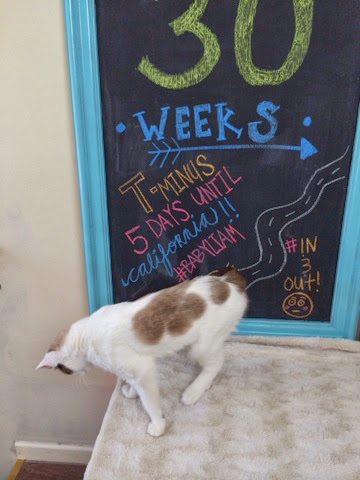 30
WEEKS
T-MINUS
5 DAYS, UNTIL
california!!
#BABYLIAM
#IN
3
OUT!